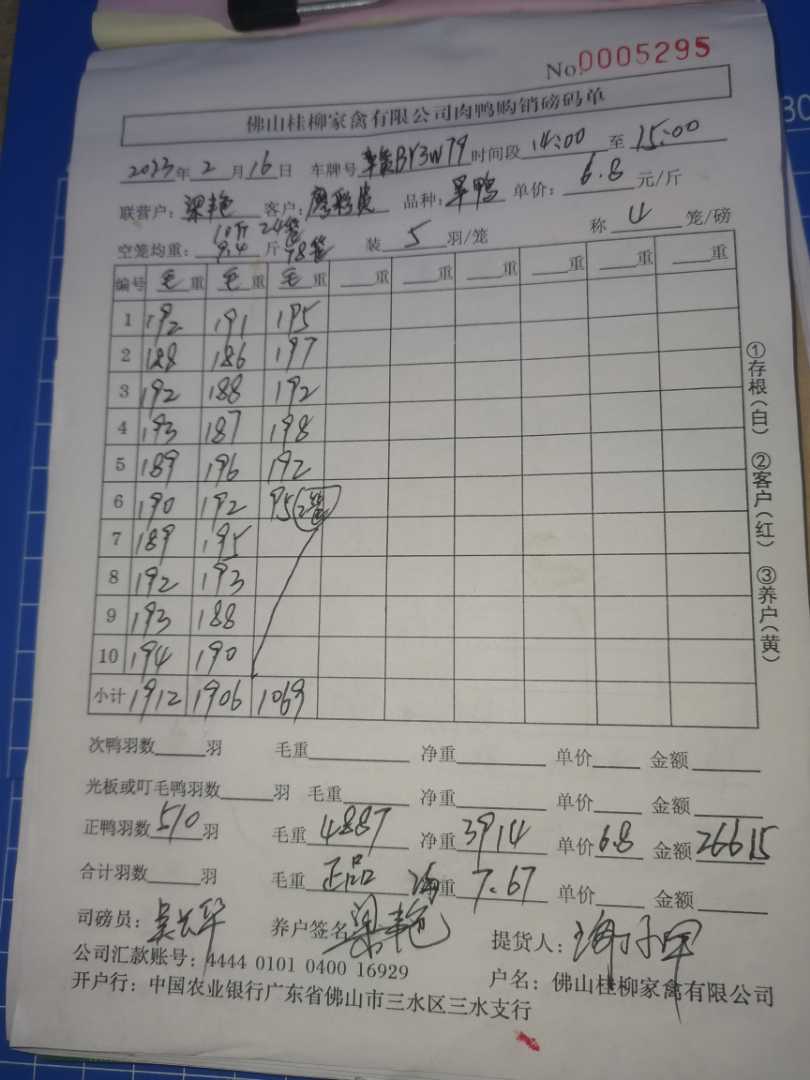 No. 0005295
佛山桂柳家禽有限公司肉鸭购销磅码单
2023年2月16日 车牌号 BY3W79 时间段 14:00 至 15:00
联营户：梁艳 客户：廖彩 品种：旱鸭 单价：6.8 元/斤
10斤 24笼
空笼均重：9.4 斤 78笼 装 5 羽/笼 称 4 笼/磅
编号 毛重 毛重 毛重 重 重 重 重 重 重
1 192 191 195
2 188 186 197
3 192 188 192
4 193 187 198
5 189 196 192
6 190 192 95(2笼)
7 189 195
8 192 193
9 193 188
10 194 190
小计 1912 1906 1069
①存根(白) ②客户(红) ③养户(黄)
次鸭羽数 羽 毛重 净重 单价 金额
光板或叮毛鸭羽数 羽 毛重 净重 单价 金额
正鸭羽数 510 羽 毛重 4887 净重 3914 单价 6.8 金额 26615
合计羽数 羽 毛重 正品 净重 7.67 单价 金额
司磅员： 养户签名 梁艳 提货人：
公司汇款账号：4444 0101 0400 16929 户名：佛山桂柳家禽有限公司
开户行：中国农业银行广东省佛山市三水区三水支行
30